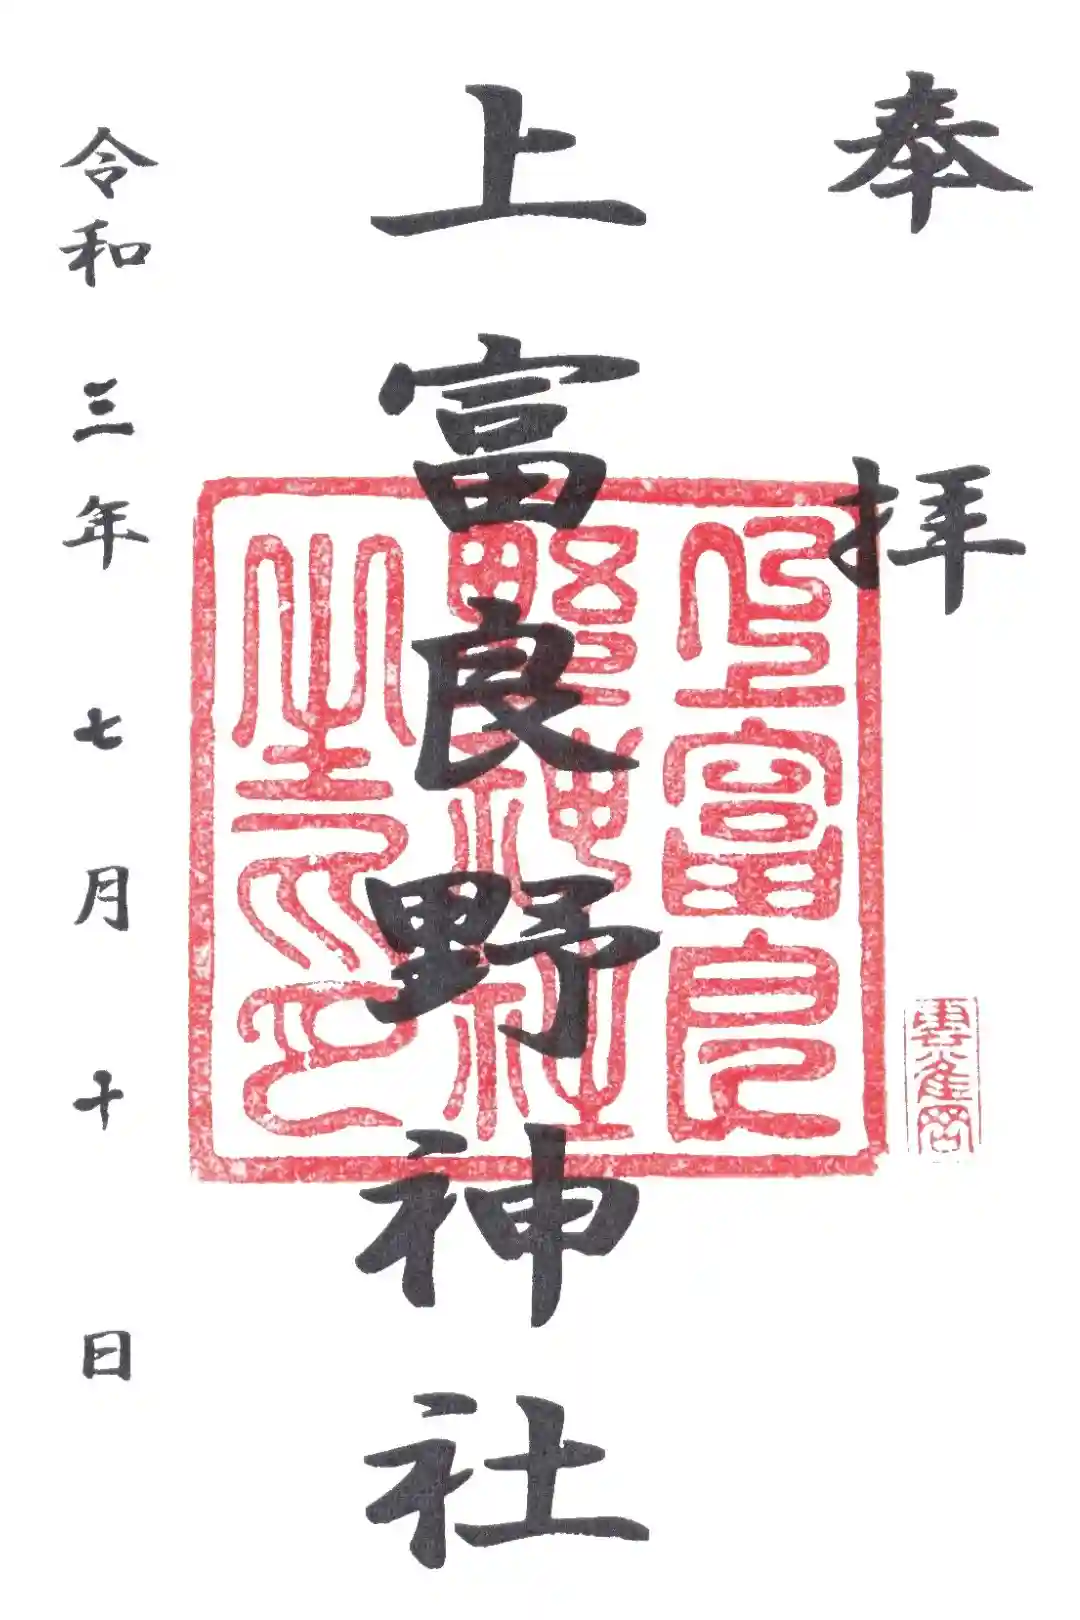 奉拝
上富良野神社
上富良
野神社
之印
令和三年七月十日